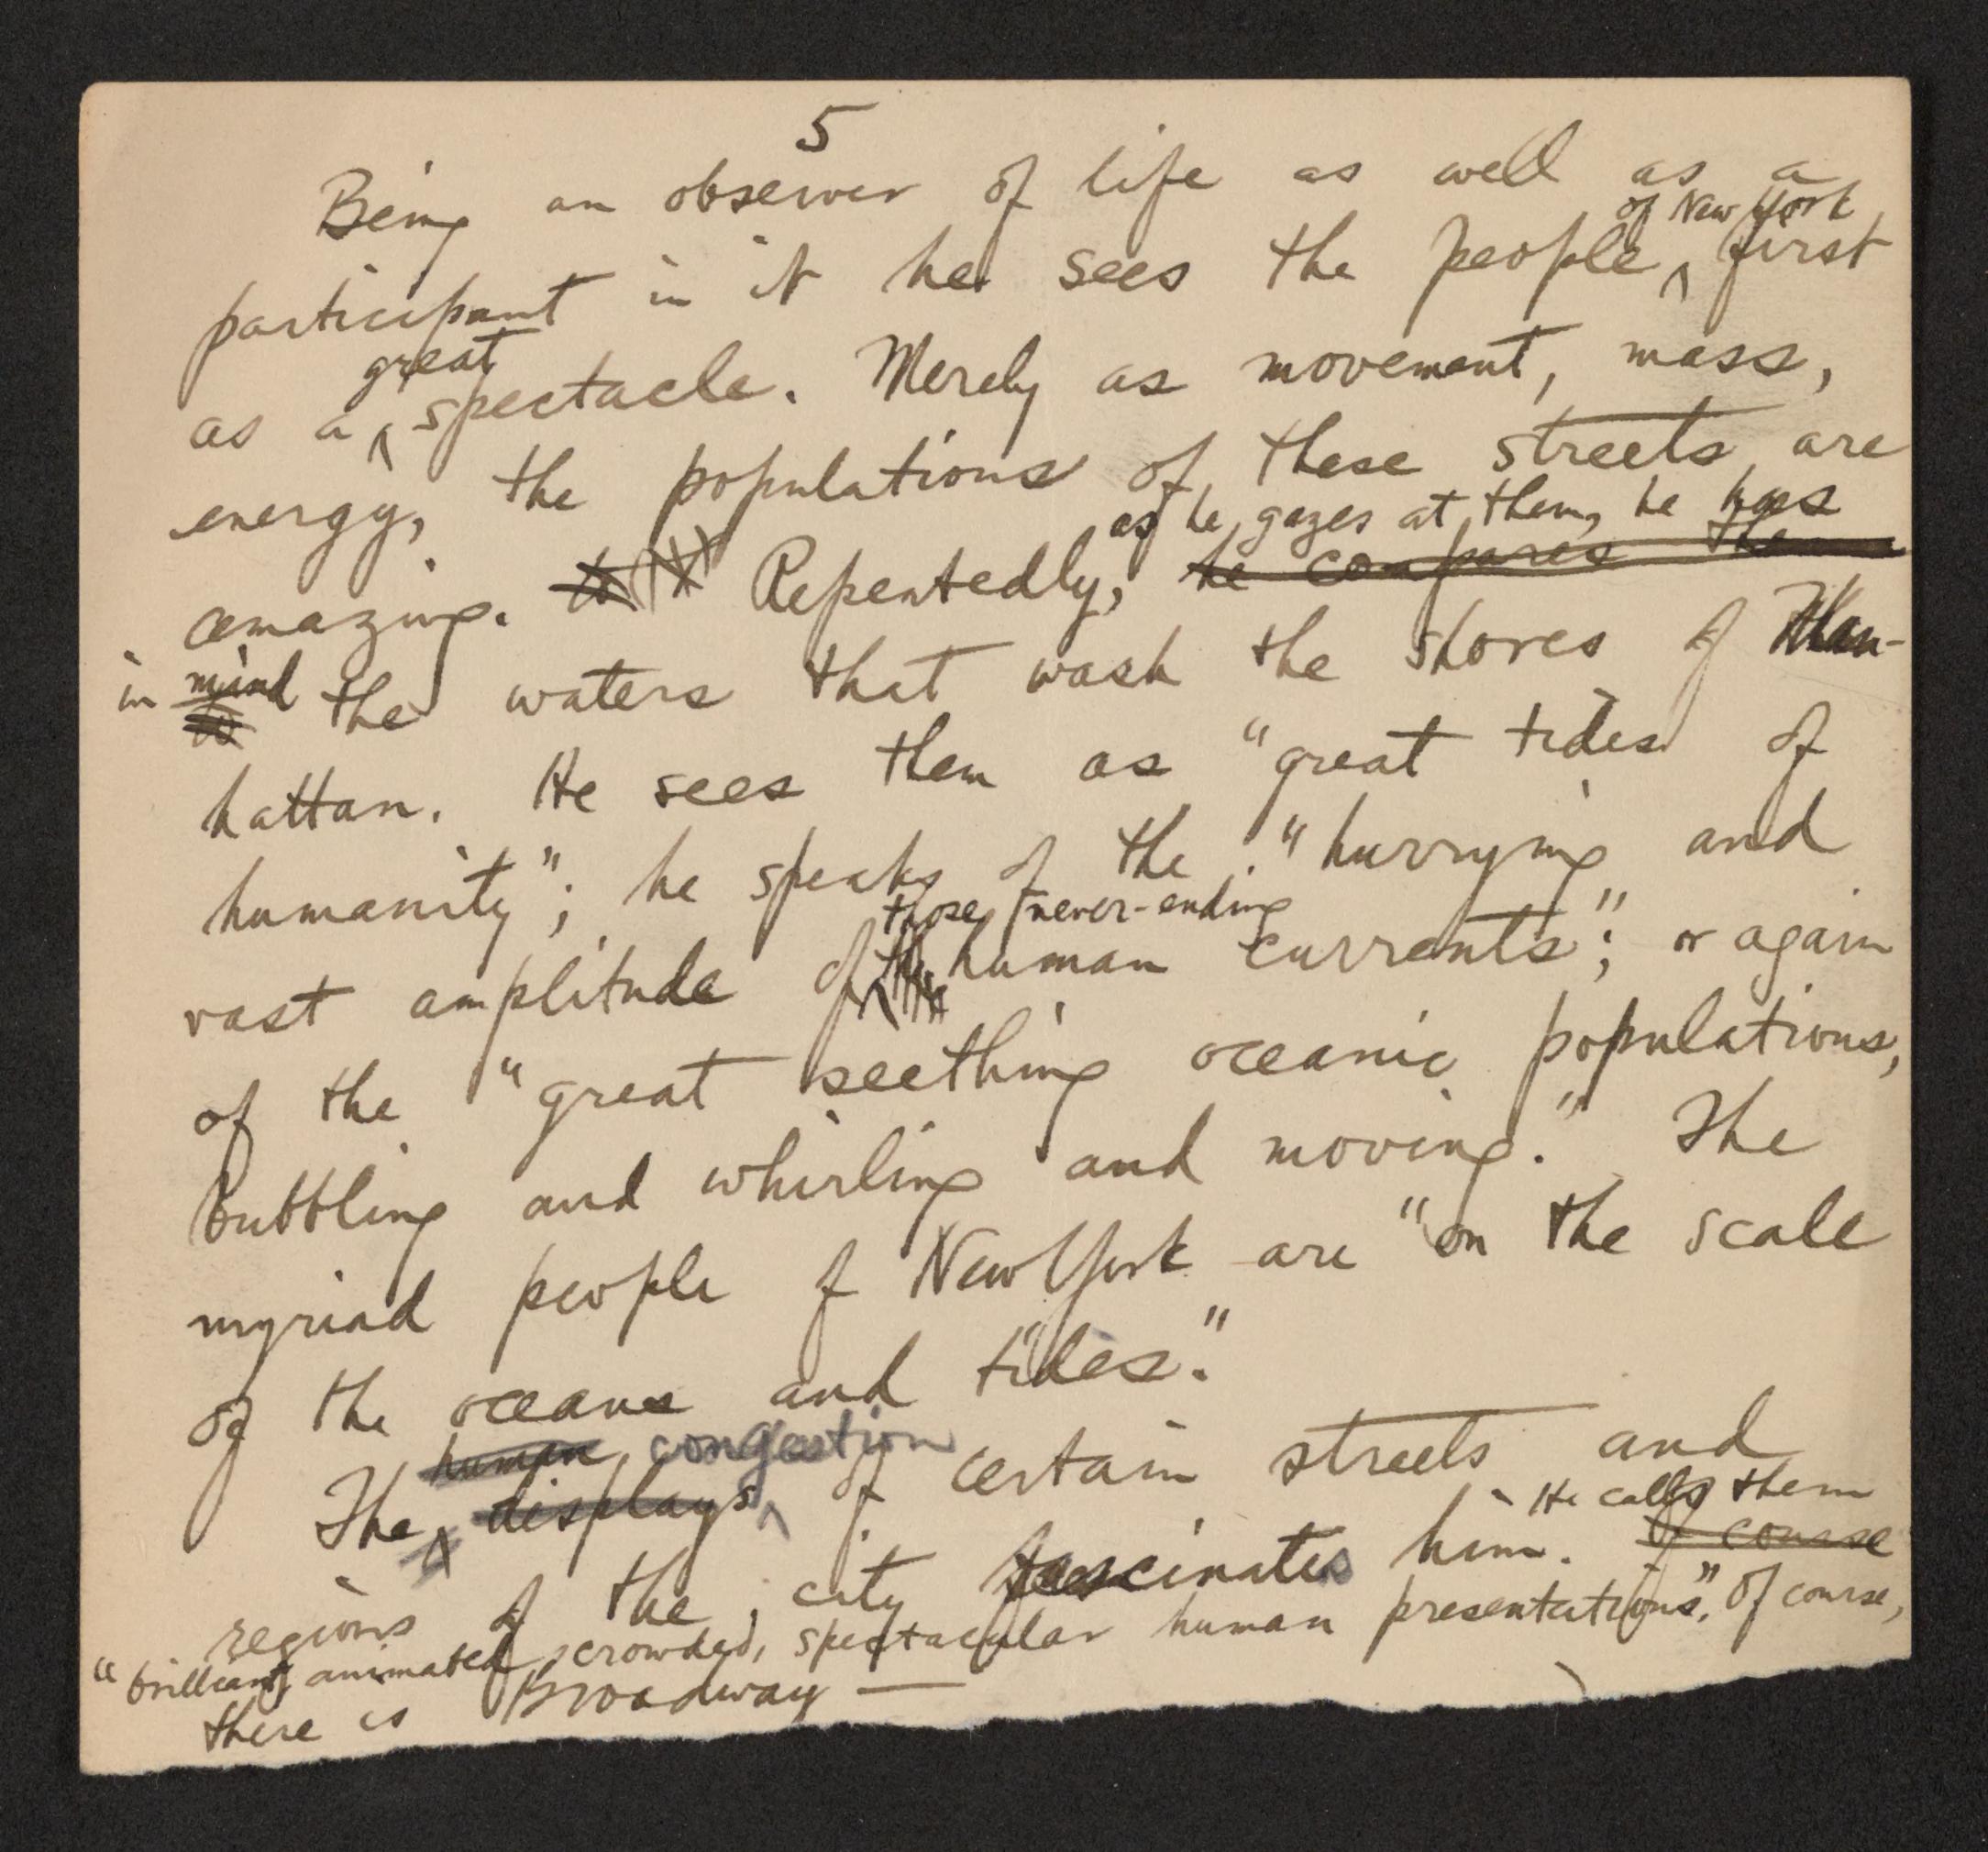 5
Being an observer of life as well as a
of New York
participant in it he sees the people ^ first
great
as a ^ spectacle. Merely as movement, mass,
energy, the populations of these streets are
as he gazes at them, he has
amazing. Repeatedly, he compares the
in mind
to the waters that wash the shores of Man-
hattan. He sees them as "great tides of
humanity"; he speaks of the "hurrying and
those never-ending
vast amplitude of the human currents"; or again
of the "great seething oceanic populations,
bubbling and whirling and moving." The
myriad people of New York are "on the scale
of the oceans and tides."
human congestion
The ^ displays ^ of certain streets and
He calls them
regions of the city fascinates him. Of course
"brilliant, animated, crowded, spectacular human presentations". Of course,
there is Broadway —